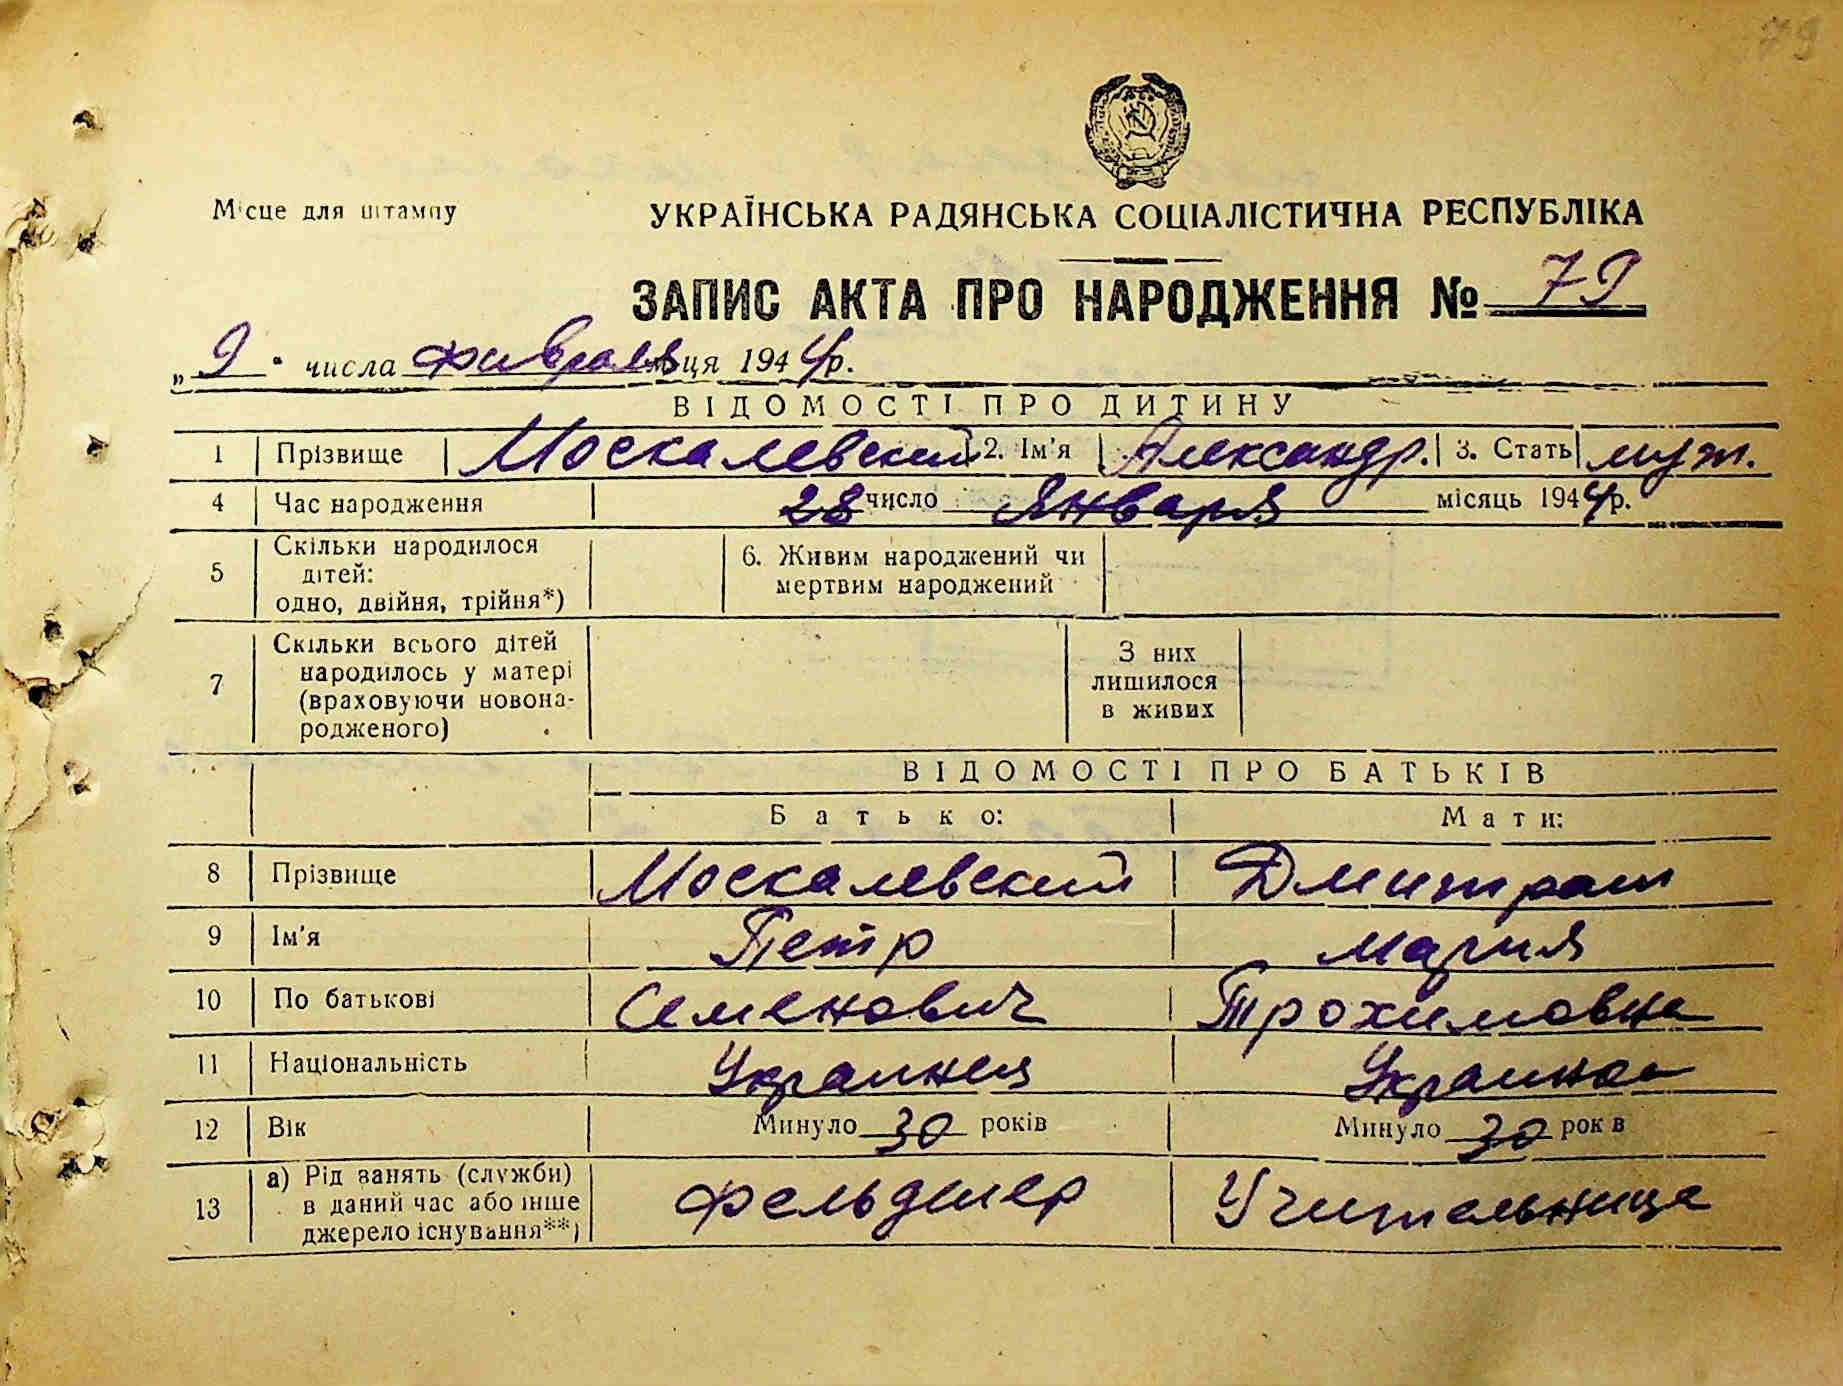 79
Місце для штампу
УКРАЇНСЬКА РАДЯНСЬКА СОЦІАЛІСТИЧНА РЕСПУБЛІКА
ЗАПИС АКТА ПРО НАРОДЖЕННЯ № 79
„ 9 " числа февраля м-ця 1944 р.
ВІДОМОСТІ ПРО ДИТИНУ
1 Прізвище Москалевский 2. Ім'я Александр. 3. Стать муж.
4 Час народження 28 число Января місяць 1944 р.
5 Скільки народилося дітей: одно, двійня, трійня*) 6. Живим народжений чи мертвим народжений
7 Скільки всього дітей народилось у матері (враховуючи новонародженого) З них лишилося в живих
ВІДОМОСТІ ПРО БАТЬКІВ
Батько: Мати:
8 Прізвище Москалевский Дмитраш
9 Ім'я Петр Мария
10 По батькові Семенович Трохимовна
11 Національність Украинец Украинка
12 Вік Минуло 30 років Минуло 30 рок в
13 а) Рід занять (служби) в даний час або інше джерело існування**) Фельдшер Учительница